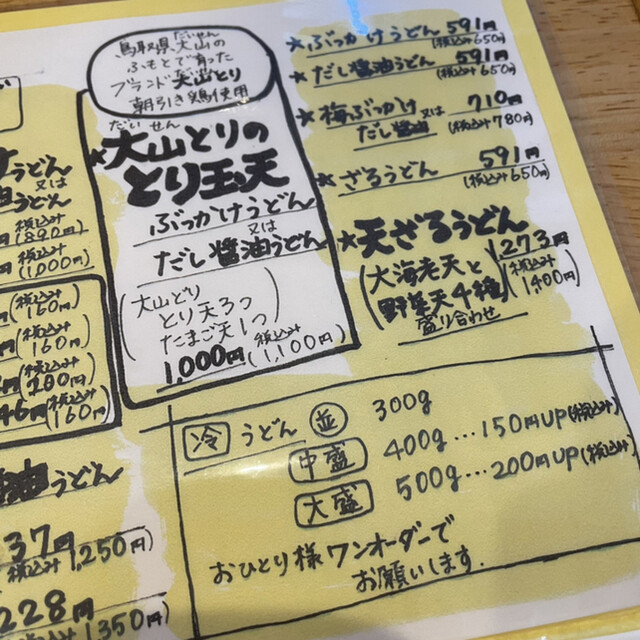 鳥取県大山の
だいせん
ふもとで育った
ブランド大山どり
朝引き鶏使用
だいせん
★大山とりの
とり玉天
ぶっかけうどん
又は
だし醤油うどん
(大山どり
とり天3つ
たまご天1つ)
1,000円(税込み1,100円)
★ぶっかけうどん 591円
(税込み650円)
★だし醤油うどん 591円
(税込み650円)
★梅ぶっかけ又は 710円
だし醤油 (税込み780円)
★ざるうどん 591円
(税込み650円)
★天ざるうどん
1273円
(税込み1400円)
(大海老天と
野菜天4種
盛り合わせ)
うどん
又は
うどん
税込み
(890円)
税込み
(1,000円)
(税込み160円)
(税込み160円)
税込み
160円
うどん
37円
税込み1,250円)
228円
1350円)
冷 うどん 並 300g
中盛 400g…150円UP(税込み)
大盛 500g…200円UP(税込み)
おひとり様ワンオーダーで
お願いします.